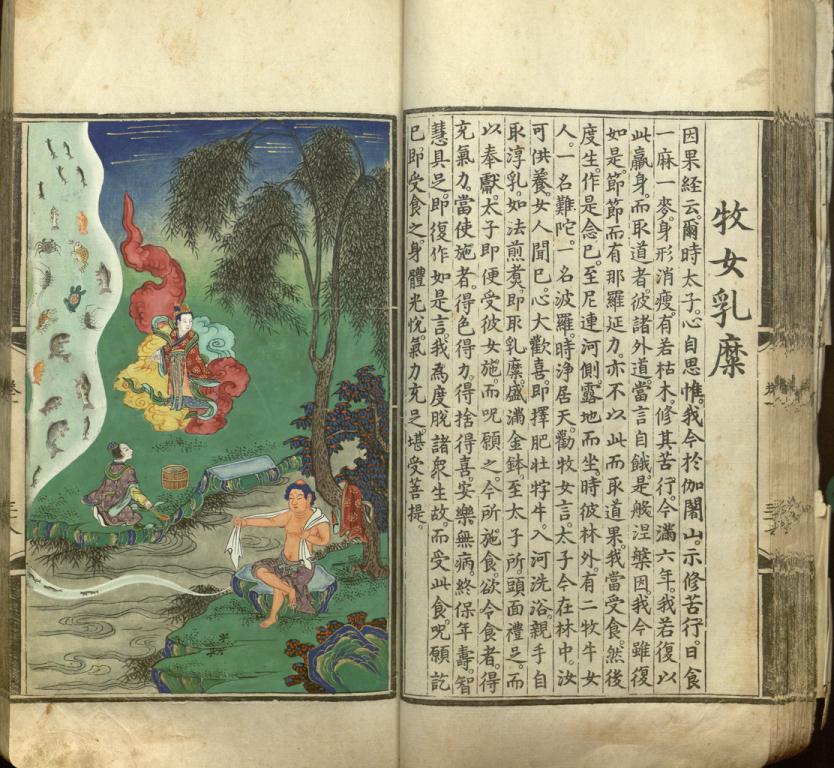 牧女乳糜
因果経云。爾時太子。心自思惟。我今於伽闍山。示修苦行。日食
一麻一麥。身形消瘦。有若枯木。修其苦行。今滿六年。我若復以
此羸身。而取道者。彼諸外道。當言自餓。是般涅槃因。我今雖復
如是。節節而有那羅延力。亦不以此而取道果。我當受食。然後
度生。作是念已。至尼連河側。露地而坐。時彼林外。有二牧牛女
人。一名難陀。一名波羅。時淨居天。勸牧女言。太子今在林中。汝
可供養。女人聞已。心大歡喜。即擇肥壯牸牛。入河洗浴。親手自
取淳乳。如法煎煑。即取乳糜。盛滿金鉢。至太子所。頭面禮足。而
以奉獻。太子即便受彼女施。而呪願之。今所施食。欲令食者。得
充氣力。當使施者。得色得力。得捨得喜。安樂無病。終保年壽。智
慧具足。即復作如是言。我為度脫諸衆生故。而受此食。呪願訖
已即受食之。身體光悅。氣力充足。堪受菩提。
卷